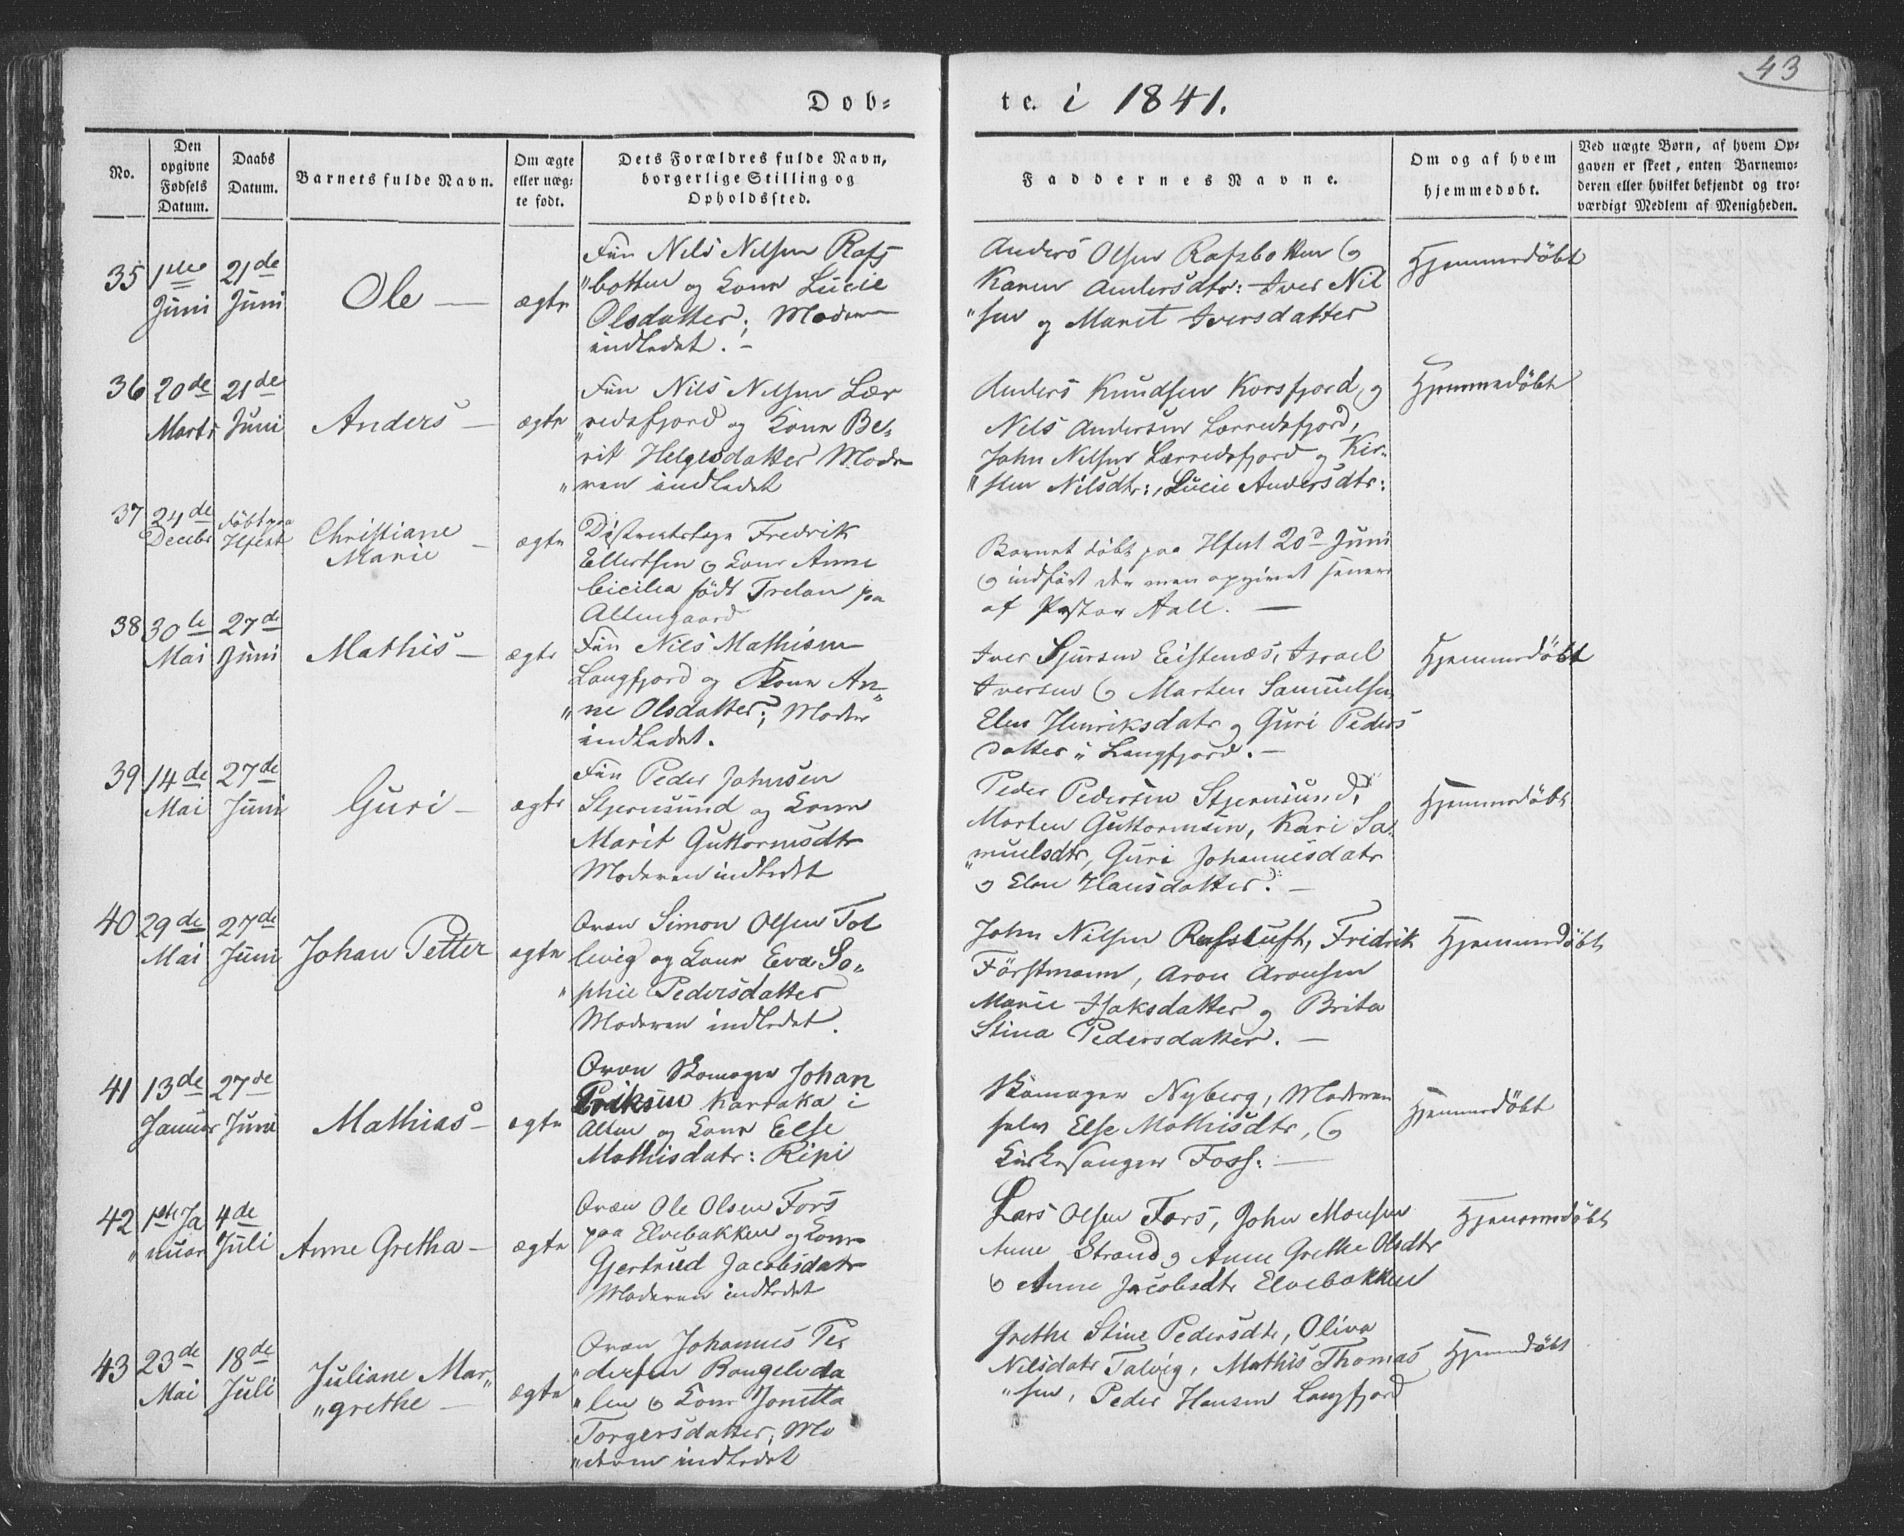 43
Døb-
te. i 1841.
No.
Den opgivne Fødsels Datum.
Daabs Datum.
Barnets fulde Navn.
Om ægte eller uægte født.
Dets Forældres fulde Navn, borgerlige Stilling og Opholdssted.
Faddernes Navne.
Om og af hvem hjemmedøbt.
Ved uægte Børn, af hvem Opgaven er skeet, enten Barnemoderen eller hvilket bekjendt og troværdigt Medlem af Menigheden.
35
1ste Juni
21de Juni
Ole
ægte
Fin Nils Nilsen Rafs
"botten og Kone Lucie
Olsdatter; Moderen
indledet.
Anders Olsen Rafsbotten og
Karen Andersdtr: Iver Nil
"sen og Marit Iversdatter
Hjemmedøbt
36
20de Marts
21de Juni
Anders
ægte
Fin Nils Nilsen Lær
"redsfjord og Kone Be-
rit Helgesdatter Mode
"ren indledet
Anders Knudsen Korsfjord og
Nils Andersen Lærredsfjord,
John Nilsen Lærredsfjord og Kir-
"sten Nilsdtr:, Lucie Andersdtr:
Hjemmedøbt
37
24de Decebr
døbt paa Hfest
Christiane Marie
ægte
Fredrik
Ellertsen og Kone Anne
Cicilia født Trelan paa
Altengaard
Barnet døbt paa Hfest 20d Juni
og indført der men opgivet senere
af Pastor Aall.
38
30te Mai
27de Juni
Mathis
ægte
Fin Nils Mathisen
Langfjord og Kone An-
"ne Olsdatter; Moder
indledet.
Iver Sjursen Eistenæs, Israel
Iversen og Marten Samuelsen,
Elen Henriksdatr og Guri Peders
datter i Langfjord.
Hjemmedøbt
39
14de Mai
27de Juni
Guri
ægte
Fin Peder Johnsen
Stjernsund og Kone
Marit Guttormsdtr
Moderen indledet
Peder Pedersen Stjernsund,
Morten Guttormsen, Kari Sa-
"muelsdtr, Guri Johannesdatr
og Elen Hansdatter.
Hjemmedøbt
40
29de Mai
27de Juni
Johan Petter
ægte
Qvæn Simon Olsen Tol
levig og Kone Eva So-
"phie Pedersdatter
Moderen indledet.
John Nilsen Rafsluft, Fridrik
Förstmann, Aron Aronsen
Marie Isaksdatter og Brita
Stina Pedersdatter.
Hjemmedøbt
41
13de Januar
27de Juni
Mathias
ægte
Qvæn Skomager Johan
Eriksen Karraka i
Alten og Kone Else
Mathisdatr: Ripi
Skomager Nyberg, Moderen
selv Else Mathisdtr, og
Kirkesanger Foss:
Hjemmedøbt
42
1ste Ja
"nuar
4de Juli
Anne Gretha
ægte
Qvæn Ole Olsen Fors
paa Elvebakken og Kone
Gjertrud Jacobsdatr
Moderen indledet
Lars Olsen Fors, John Monsen
Anne Strand og Anne Grethe Olsdtr
og Anne Jacobsdtr Elvebakken
Hjemmedøbt
43
23de Mai
18de Juli
Juliane Mar-
"grethe
ægte
Qvæn Johannes Pe-
"dersen Bougelvda
"len og Kone Jonetta
Torgersdatter, Mo
"deren indledet
Grethe Stine Pedersdtr, Oliva
Nilsdatr Talvig, Mathis Thomas
"sen, Peder Hansen Langfjord
Hjemmedøbt